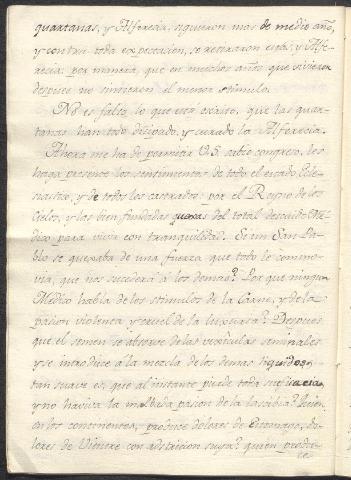 quartanas, y Alferecia, siguieron mas de medio año,
y contra toda expectacion, se retiraron estas, y Alfe-
recia: por manera, que en muchos años que vivieron
despues no sintieron el menor stimulo.
No es falto lo que está escrito, que las quar-
tanas han todo disipado, y curado la Alferecia.
Ahora me ha de permitir V.S. sabio congreso, les
haga presente los sentimientos de todo el estado Ecle-
siastico, y de todos los castrados por el Reyno de los
Cielos, y las bien fundadas quexas del total descuido Me-
dico para vivir con tranquilidad. Si un San Pa-
blo se quexaba de una fuerza que todo le commo-
via, que nos sucederá á los demas? Por que ningun
Medico habla de los stimulos de la Carne, y de la
pasion violenta y cruel de la luxuria? Despues
que el semen se absorve de las vexiculas seminales
y se introduce á la mezcla de los demas liquidos
tan suave es, que al instante puede toda su
y no haviva la malvada pasion de la lascibia? Quien
en los continentes, produce dolores de Estomago, do-
lores de Vientre con adstriccion suya? quien produ-
ce